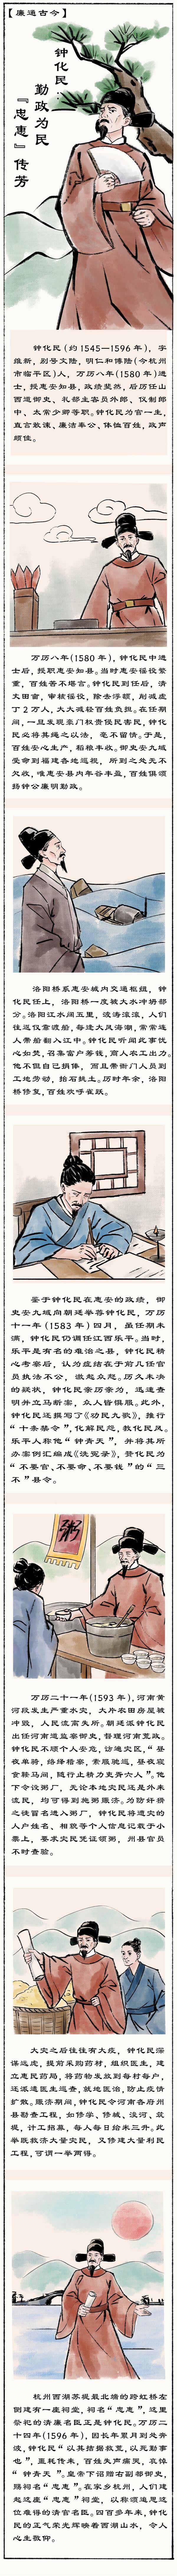 【廉通古今】
钟化民：
勤政为民
『忠惠』传芳
钟化民（约1545—1596年），字
维新，别号文陆，明仁和博陆（今杭州
市临平区）人，万历八年（1580年）进
士，授惠安知县，政绩斐然，后历任山
西道御史、礼部主客员外郎、仪制郎
中、太常少卿等职。钟化民为官一生，
直言敢谏、廉洁奉公、体恤百姓，政声
颇佳。
万历八年（1580年），钟化民中进
士后，授职惠安知县。当时惠安徭役繁
重，百姓苦不堪言。钟化民到任后，清
丈田亩，审核徭役，除去浮额，削减虚
丁2万人，大大减轻百姓负担。在任期
间，一旦发现豪门权贵侵民害民，钟化
民必将其绳之以法，毫不留情。于是，
百姓安心生产，稻粮丰收。御史安九域
受命到福建各地巡视，所到之处无不
欠收，唯惠安县内年谷丰盈，百姓俱颂
扬钟公廉明勤政。
洛阳桥系惠安城内交通枢纽，钟化
民任上，洛阳桥一度被大水冲垮部
分。洛阳江水阔五里，波涛滚滚，人们
往返仅靠渡船，每逢大风海潮，常常连
人带船翻入江中。钟化民听闻此事忧
心如焚，召集富户筹钱，商人农工出力。
他不但自己捐俸，而且带衙门人员到
工地劳动，抬石挑土。历时年余，洛阳
桥修复，百姓欢呼雀跃。
鉴于钟化民在惠安的政绩，御
史安九域向朝廷举荐钟化民，万历
十一年（1583年）四月，虽任期未
满，钟化民仍调任江西乐平。当时，
乐平是有名的难治之县，钟化民精
心考察后，认为症结在于前几任官
员执法不公，激起众怒。历久未决
的疑狱，钟化民亲历亲为，迅速查
明并立马断案，众人皆佩服。此外，
钟化民还撰写了《劝民九歌》，推行
“十条禁令”，化解民怨，教化民风。
乐平人称他“钟青天”，并将其所
办案例汇编成《洗冤录》，赞化民为
“不要官、不要命、不要钱”的“三
不”县令。
粥
万历二十一年（1593年），河南黄
河段发生严重水灾，大片农田房屋被
冲毁，人民流离失所。朝廷派钟化民
出任河南道监察御史，督理河南荒政。
钟化民不顾个人安危，访遍灾区，“昼
夜单骑，络绎稽察，素服驰巡，昼夜寝
食鞍马间，随行止精力吏胥六人”。他
下令设粥厂，无论本地灾民还是外来
流民，均可得到施粥赈济。为防奸猾
之徒冒名进入粥厂，钟化民将遭灾的
人户姓名、相貌等个人信息记载于小
票上，要求灾民凭证领粥，州县官员
不时查验。
大灾之后往往有大疫，钟化民深
谋远虑，提前采购药材，组织医生，建
立惠民药局，将药物发放到每村每户，
还派遣医生巡查，就地医治，防止疫情
扩散。赈济期间，钟化民令河南各府州
县勘查工程，如修学、修城、浚河、筑
堤，计工招募，每人每日给米三升。此
举既救济大量灾民，又修建大量利民
工程，可谓一举两得。
杭州西湖苏堤最北端的跨虹桥左
侧建有一座祠堂，祠名“忠惠”，这里
祭祀的清廉名臣正是钟化民。万历二
十四年（1596年），因长年累月到处奔
波，钟化民“以其拮据救荒，以死勤事
也”，噩耗传来，百姓失声痛哭，哀悼
“钟青天”。皇帝下诏赠右副都御史，
赐祠名“忠惠”。在家乡杭州，人们建
起这座“忠惠”祠堂，以称颂追思这
位难得的清官名臣。四百多年来，钟化
民的正气荣光辉映着西湖山水，令人
心生敬仰。